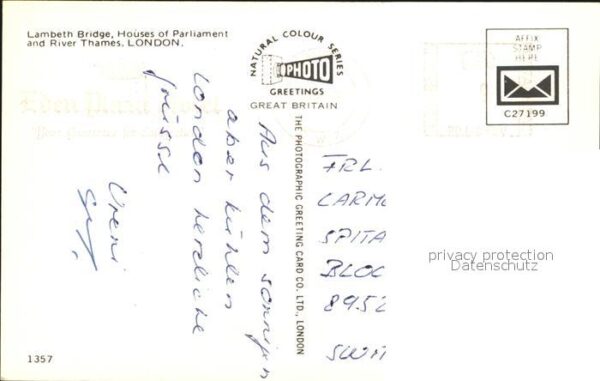 Lambeth Bridge, Houses of Parliament
and River Thames, LONDON.
NATURAL COLOUR SERIES
PHOTO
GREETINGS
GREAT BRITAIN
AFFIX
STAMP
HERE
C27199
THE PHOTOGRAPHIC GREETING CARD CO. LTD., LONDON
Aus dem sonnigen
aber kühlen
London herzliche
Grüsse
Vreni
FRL.
CARM
SPITA
BLOC
8952
SWIT
privacy protection
Datenschutz
1357